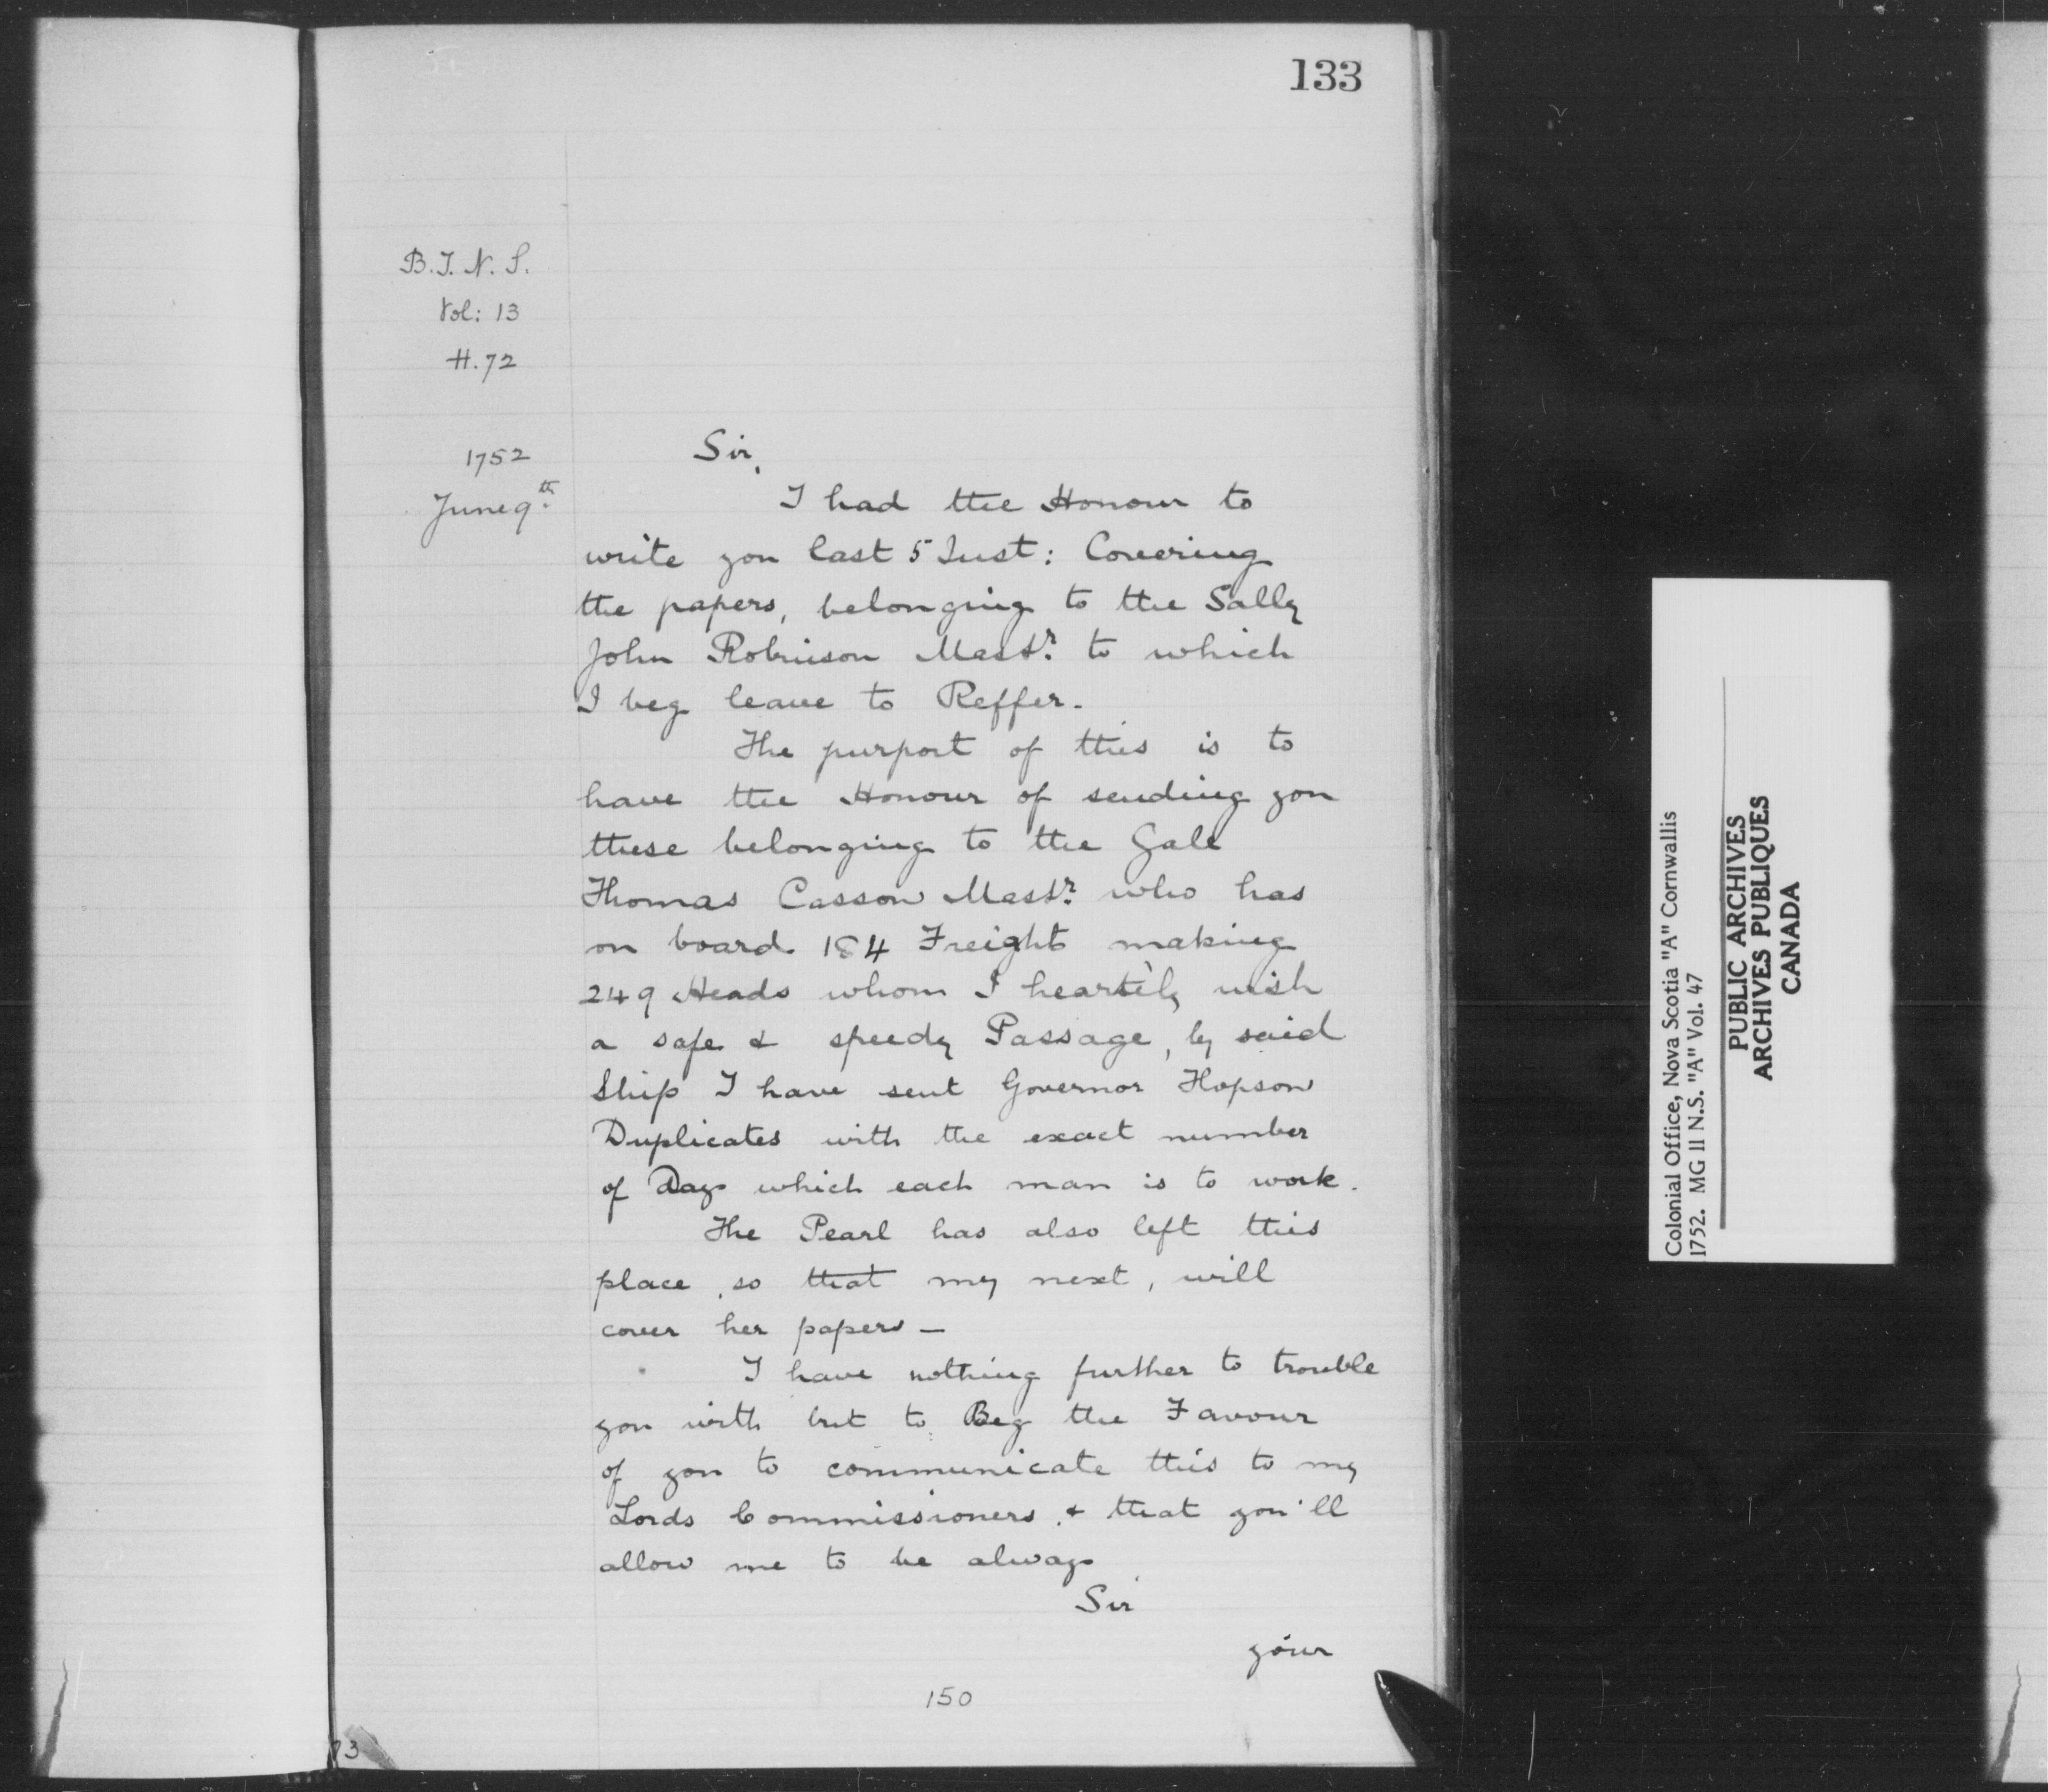 133
B.T. N. S.
Vol: 13
H. 72
1752
June 9th
Sir,
I had the Honour to
write you last 5 Inst: Covering
the papers, belonging to the Sally
John Robinson Mastr. to which
I beg leave to Reffer.
The purport of this is to
have the Honour of sending you
these belonging to the Gale
Thomas Casson Mastr. who has
on board 184 Freights making
249 Heads whom I heartily wish
a safe & speedy Passage, by said
Ship I have sent Governor Hopson
Duplicates with the exact number
of Days which each man is to work.
The Pearl has also left this
place, so that my next, will
cover her papers —
I have nothing further to trouble
you with but to Beg the Favour
of you to communicate this to my
Lords Commissioners, & that you'll
allow me to be always
Sir
your
150
73
Colonial Office, Nova Scotia "A" Cornwallis
1752. MG 11 N.S. "A" Vol. 47
PUBLIC ARCHIVES
ARCHIVES PUBLIQUES
CANADA